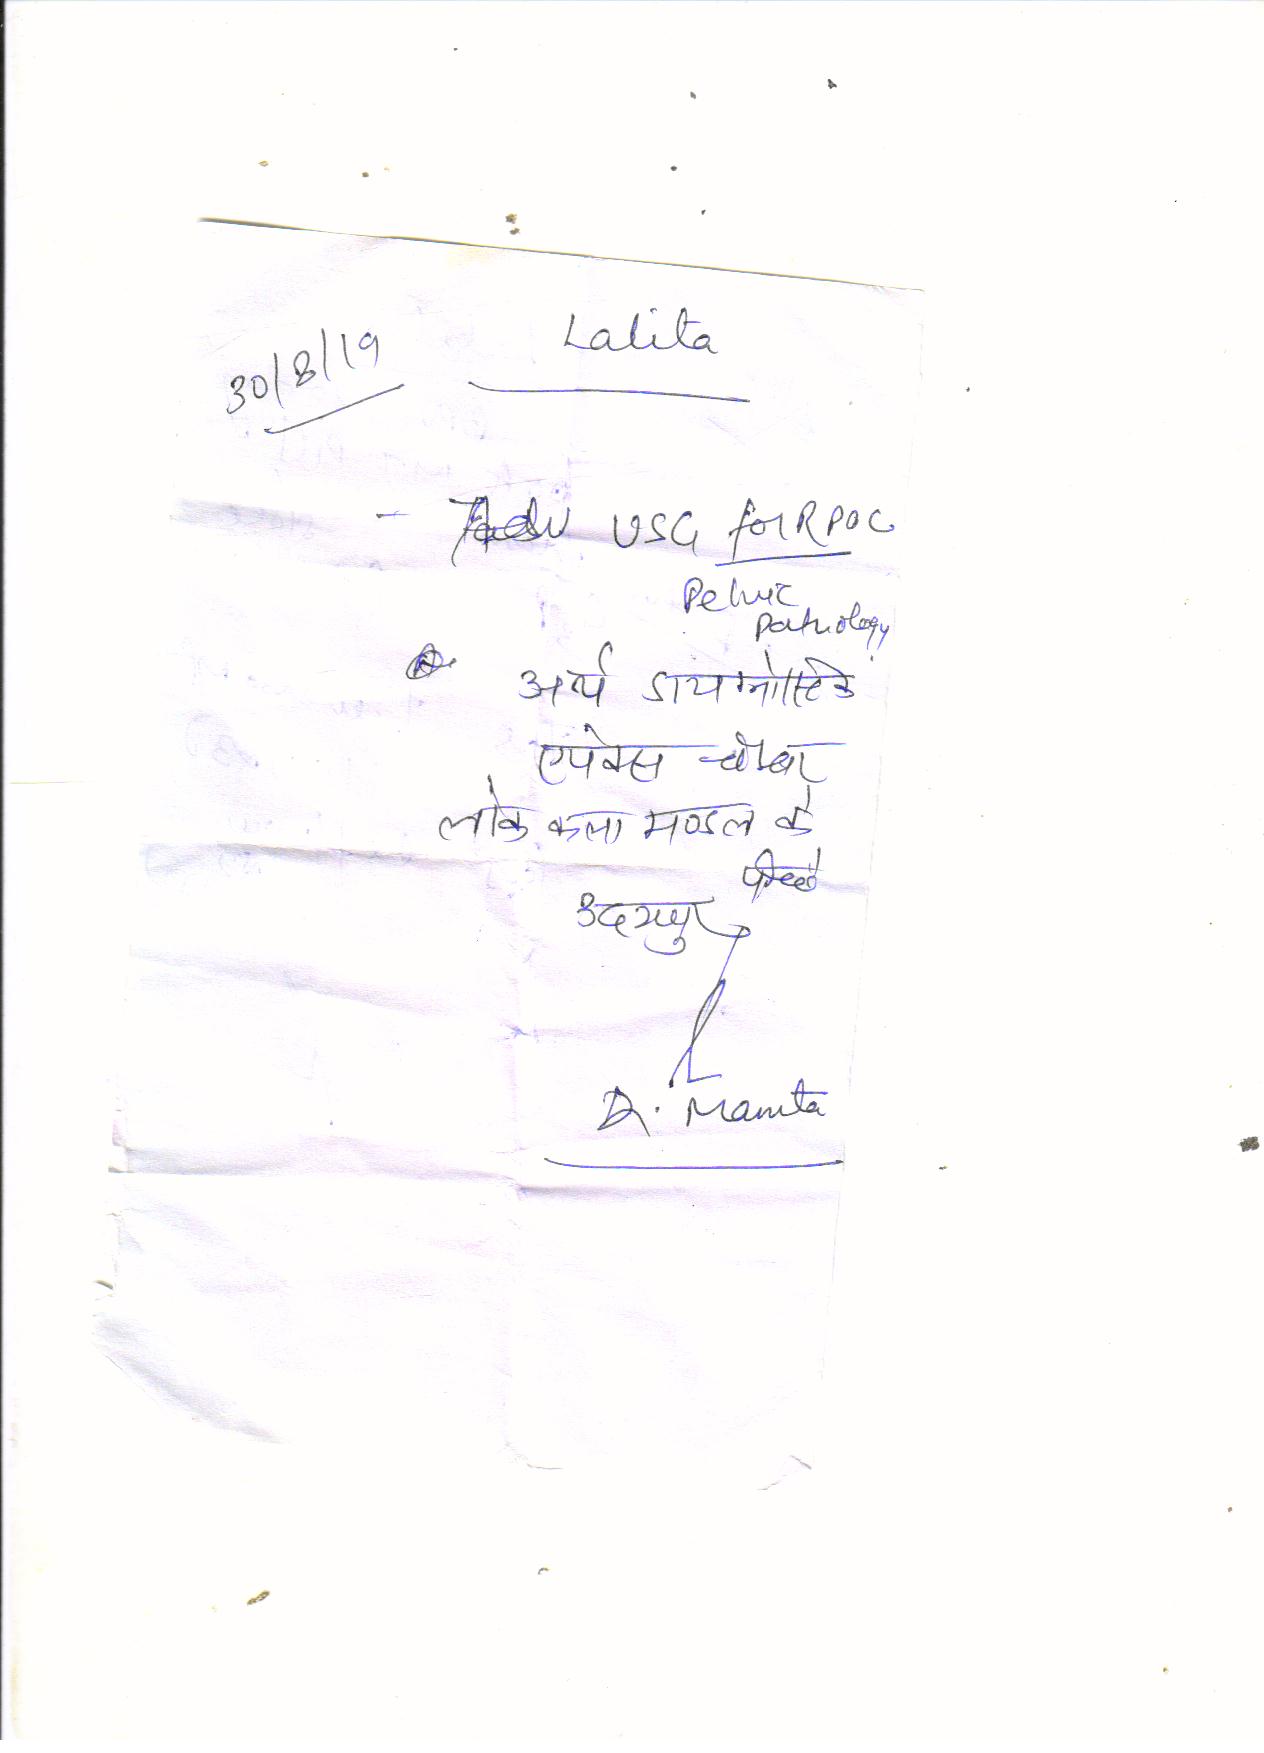 Lalita
30/8/19
- Adv USG for RPOC
Pelvic
Pathology
अर्थ डायग्नोस्टिक
एपेक्स चेम्बर
लोक कला मण्डल के
पीछे
उदयपुर
Dr. Mamta